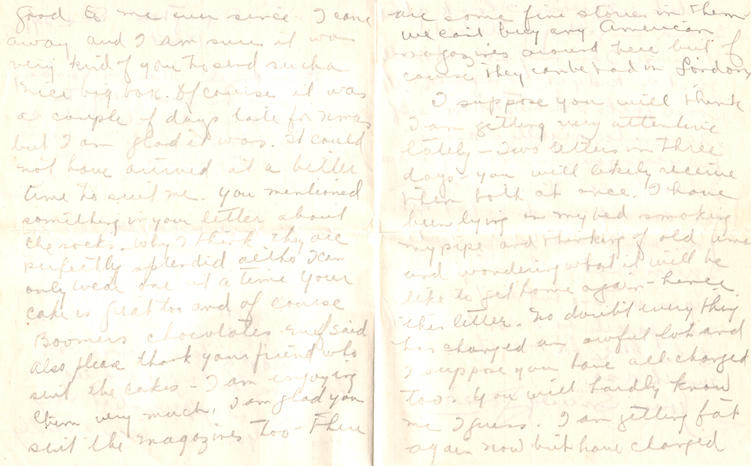 good to me ever since I came
away and I am sure it was
very kind of you to send such a
nice big box. Of course it was
a couple of days late for Xmas
but I am glad it was. It could
not have arrived at a better
time to suit me. You mentioned
something in your letter about
the socks. Why I think they are
perfectly splendid altho I can
only wear one at a time Your
cake is great too and of course
Boomers chocolates - nuf said
Also please thank your friend who
sent the cakes - I am enjoying
them very much, I am glad you
sent the magazines too - There
are some fine stories in them
we cant buy any American
magazines around here but of
course they can be had in London
I suppose you will think
I am getting very attentive
lately - Two letters in three
days - you will likely receive
them both at once. I have
been lying in my bed smoking
my pipe and thinking of old times
and wondering what it will be
like to get home again - hence
this letter. No doubt every thing
has changed an awful lot and
I suppose you have all changed
too. You will hardly know
me I guess. I am getting fat
again now but have changed